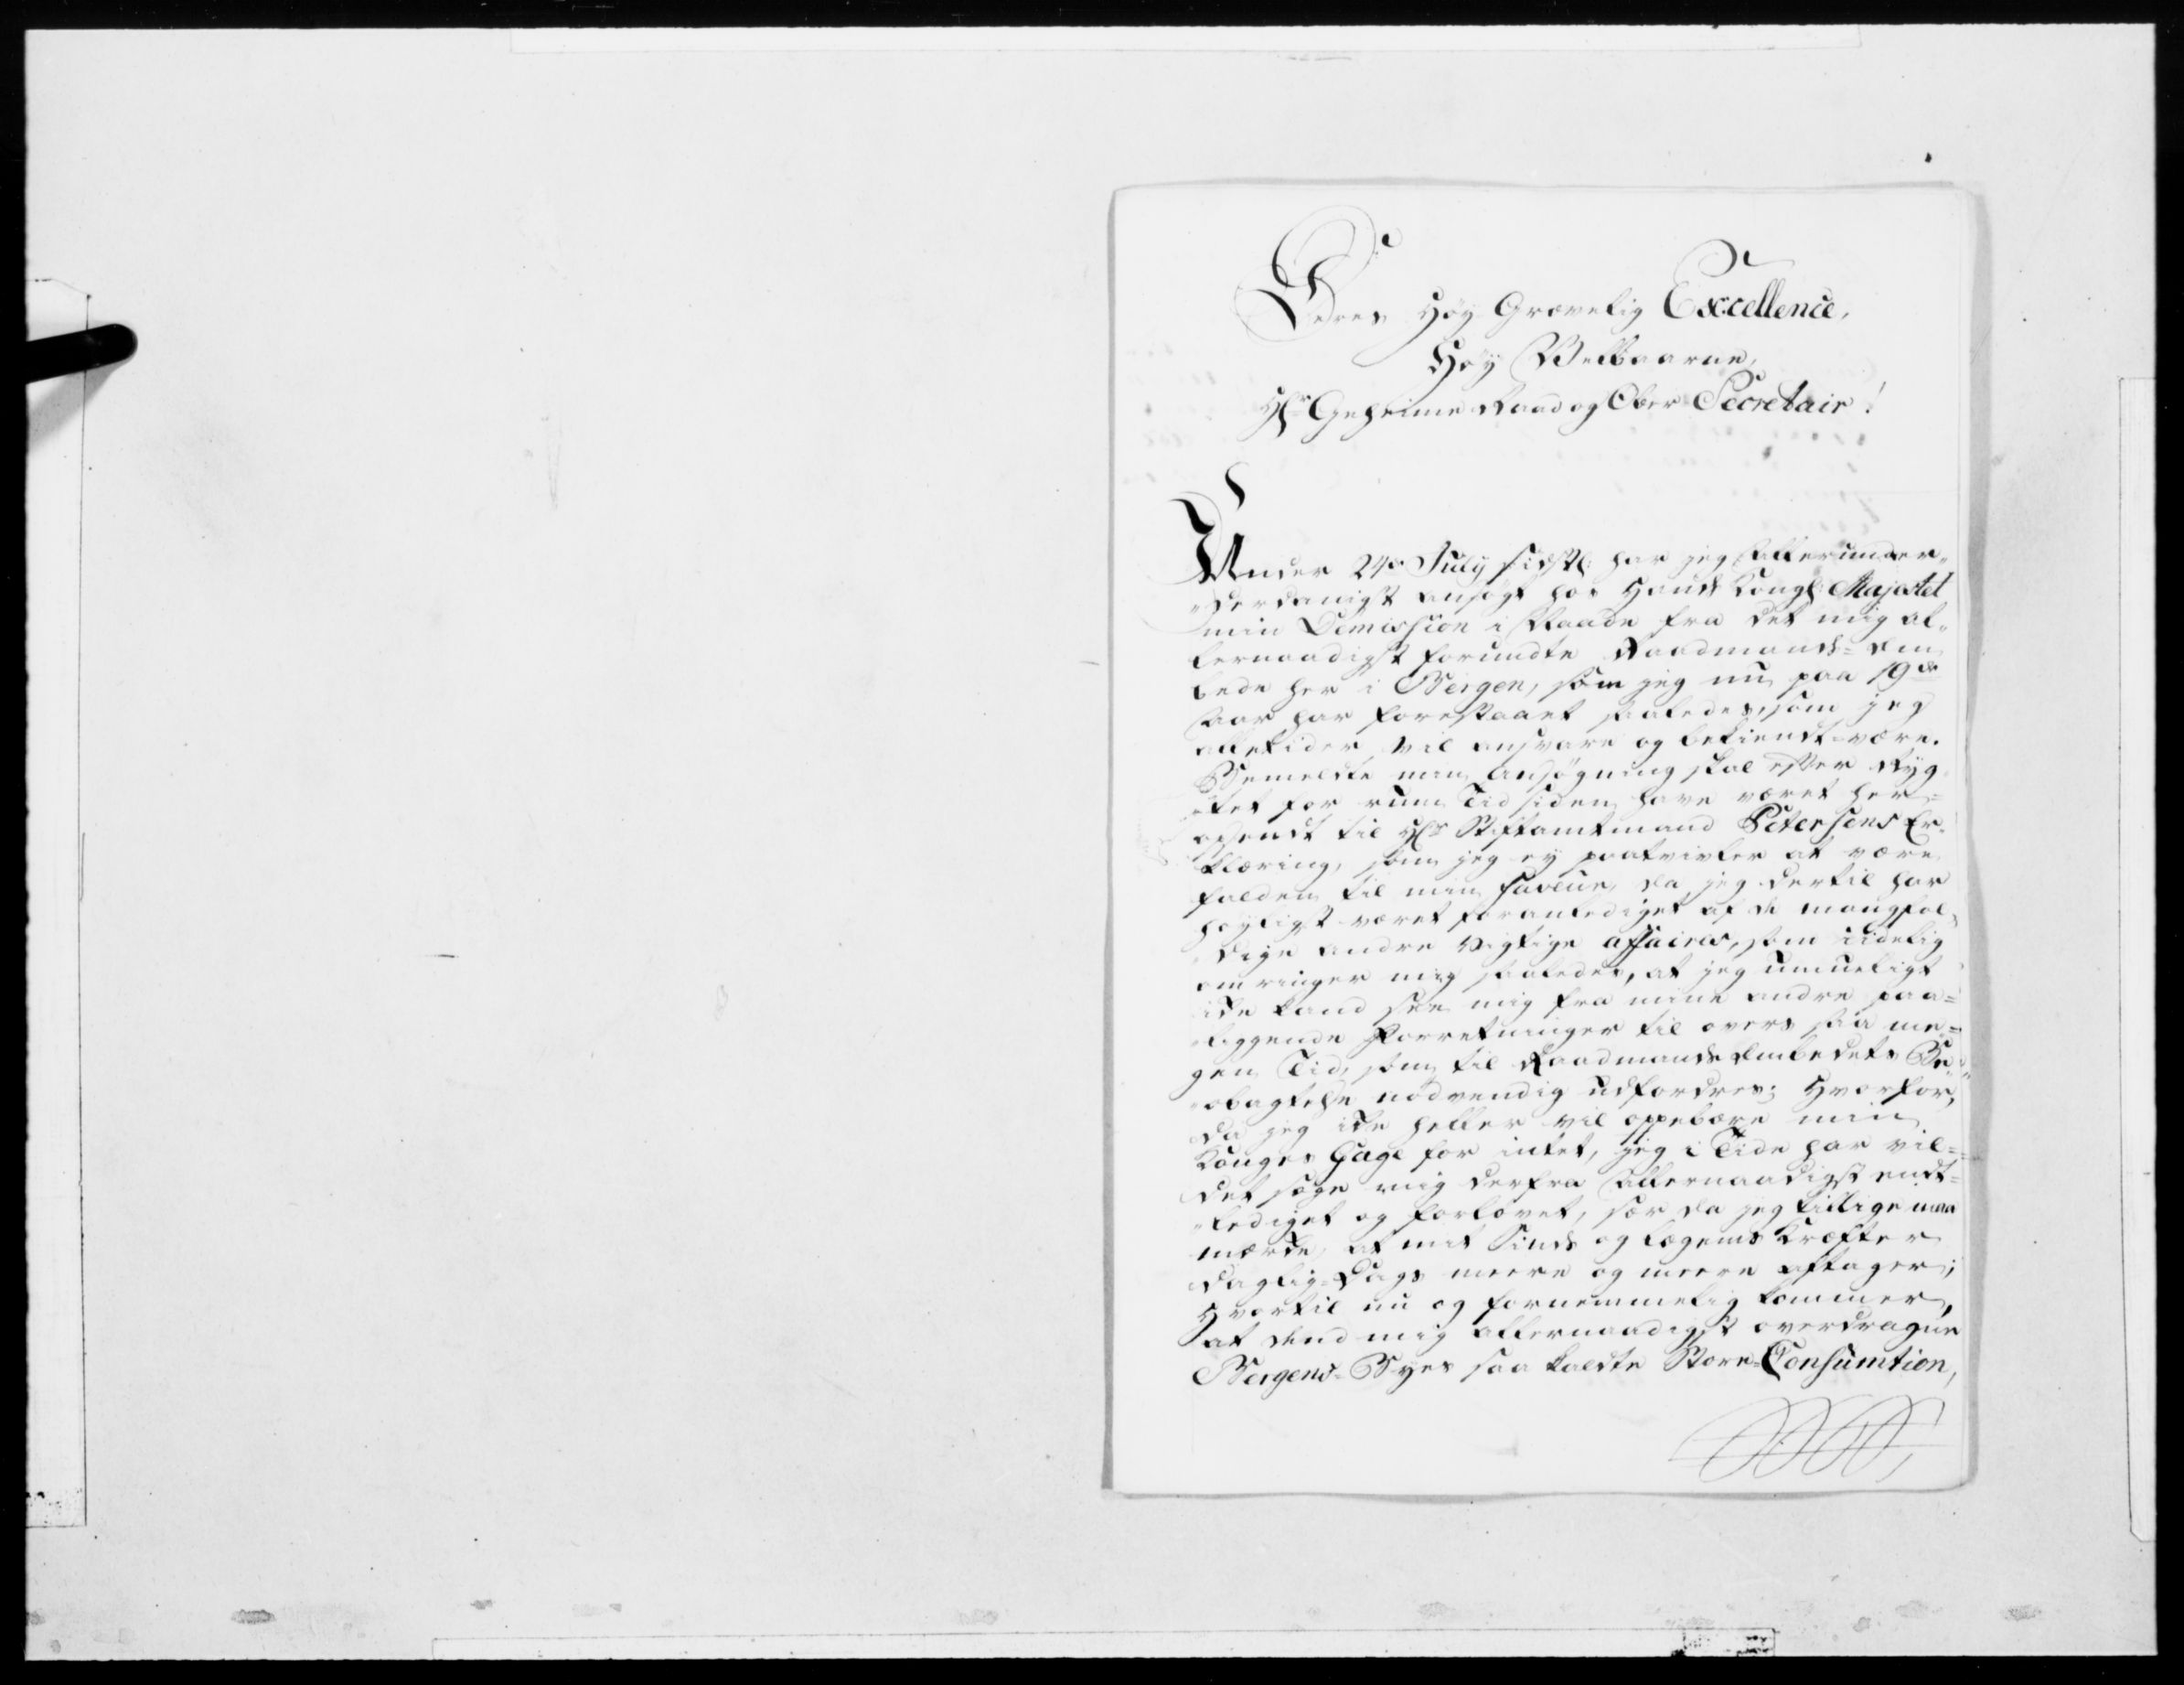 Deres Høy Grævelig Excellence,
Høy Welbaarne,
Hr Geheime Raad og Ober Secretair!
Under 24de July sidstl: har jeg allerunder„
„derdanigst ansøgt hos Hands Kongl: Majestet
min Demission i Naade fra det mig al„
lernaadigst forundte Raadmands=Em
bede her i Bergen, som jeg nu paa 19de
Aar har forestaaet saaledes, som jeg
alletider vil ansvare og bekiendt være.
Bemeldte min Ansøgning skal efter Ryg„
„tet for rum Tid siden have været her=
opsendt til Hr Stiftamtmand Petersens Er„
klæring, som jeg ey paatvivler at være
falden til min faveur, da jeg dertil har
høyligst været foranlediget af de mangfol„
dige andre vigtige affaires, som iidelig
omringer mig saaledes, at jeg umueligt
ike kand see mig fra mine andre paa=
„liggende Forretninger til overs saa me=
gen Tid, som til Raadmands Embedets Be„
„obagtelse nødvendig udfordres; Hvorfor,
da jeg ike heller vil oppebære min
Konges Gage for intet, jeg i Tide har vil=
det søge mig derfra allernaadigst endt=
„lediget og forlovet, sær da jeg tillige maa
mærke, at mit Sinds og Legems Kræfter
daglig=Dags meere og meere aftager;
Hvortil nu og fornemmelig kommer,
at dend mig allernaadigst overdragne
Bergens=Byes saa kaldte Store=Consumtion,